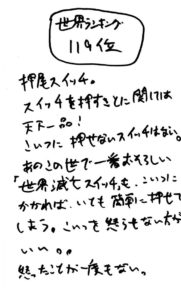 世界ランキング
119位
押尾スイッチ。
スイッチを押すことに関しては
天下一品！
こいつに押せないスイッチはない。
あのこの世で一番おそろしい
「世界滅亡スイッチ」も、こいつに
かかれば、いとも簡単に押せて
しまう。こいつを怒らせない方が
いい。。
怒ったことが一度もない。